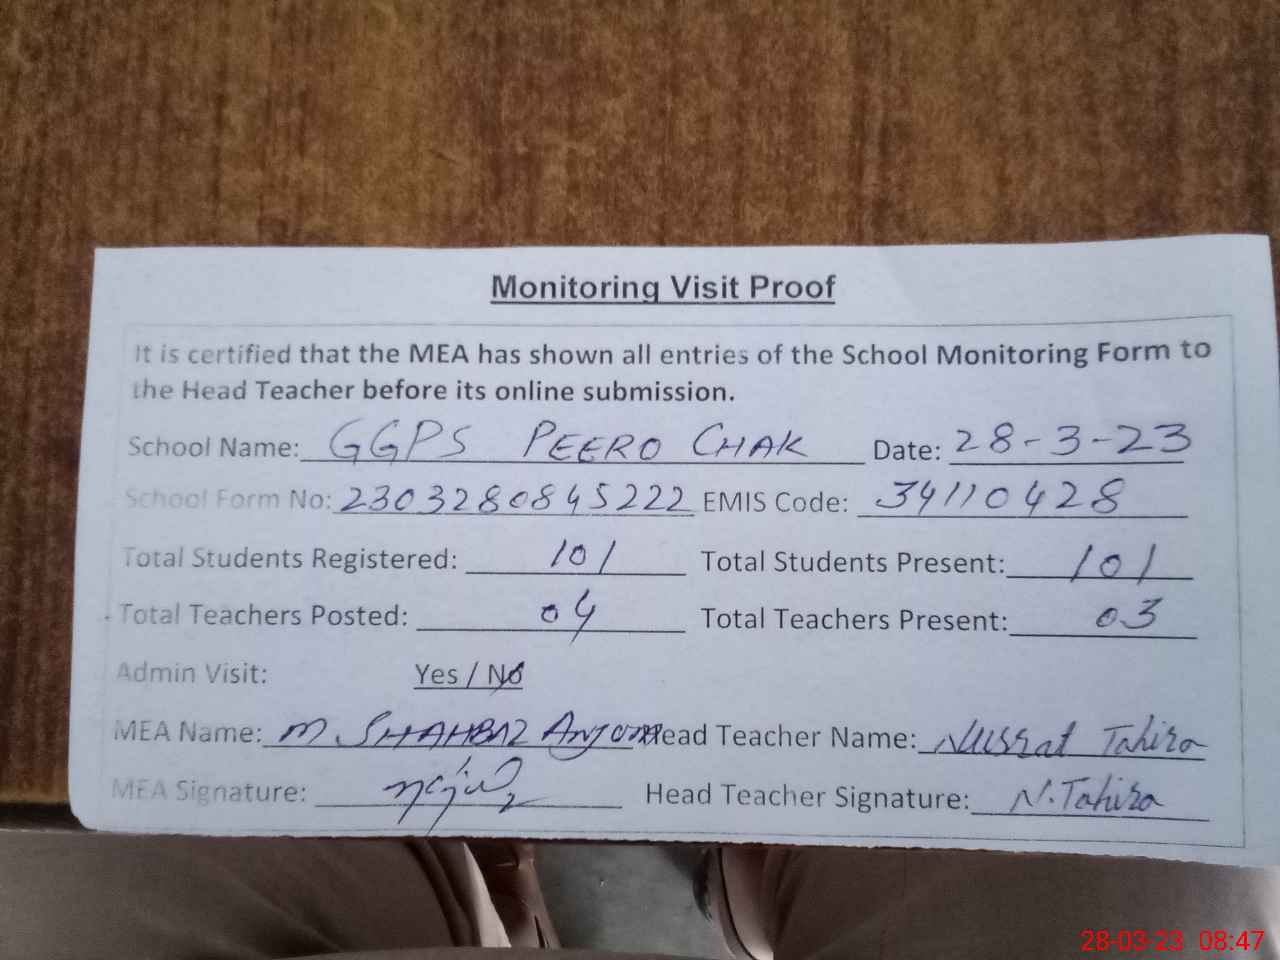 Monitoring Visit Proof
It is certified that the MEA has shown all entries of the School Monitoring Form to
the Head Teacher before its online submission.
School Name: GGPS PEERO CHAK Date: 28-3-23
School Form No: 2303280845222 EMIS Code: 34110428
Total Students Registered: 101 Total Students Present: 101
Total Teachers Posted: 04 Total Teachers Present: 03
Admin Visit: Yes / No
MEA Name: M. SHAHBAZ Anjum Head Teacher Name: Nussrat Tahira
MEA Signature: Head Teacher Signature: N.Tahira
28-03-23 08:47